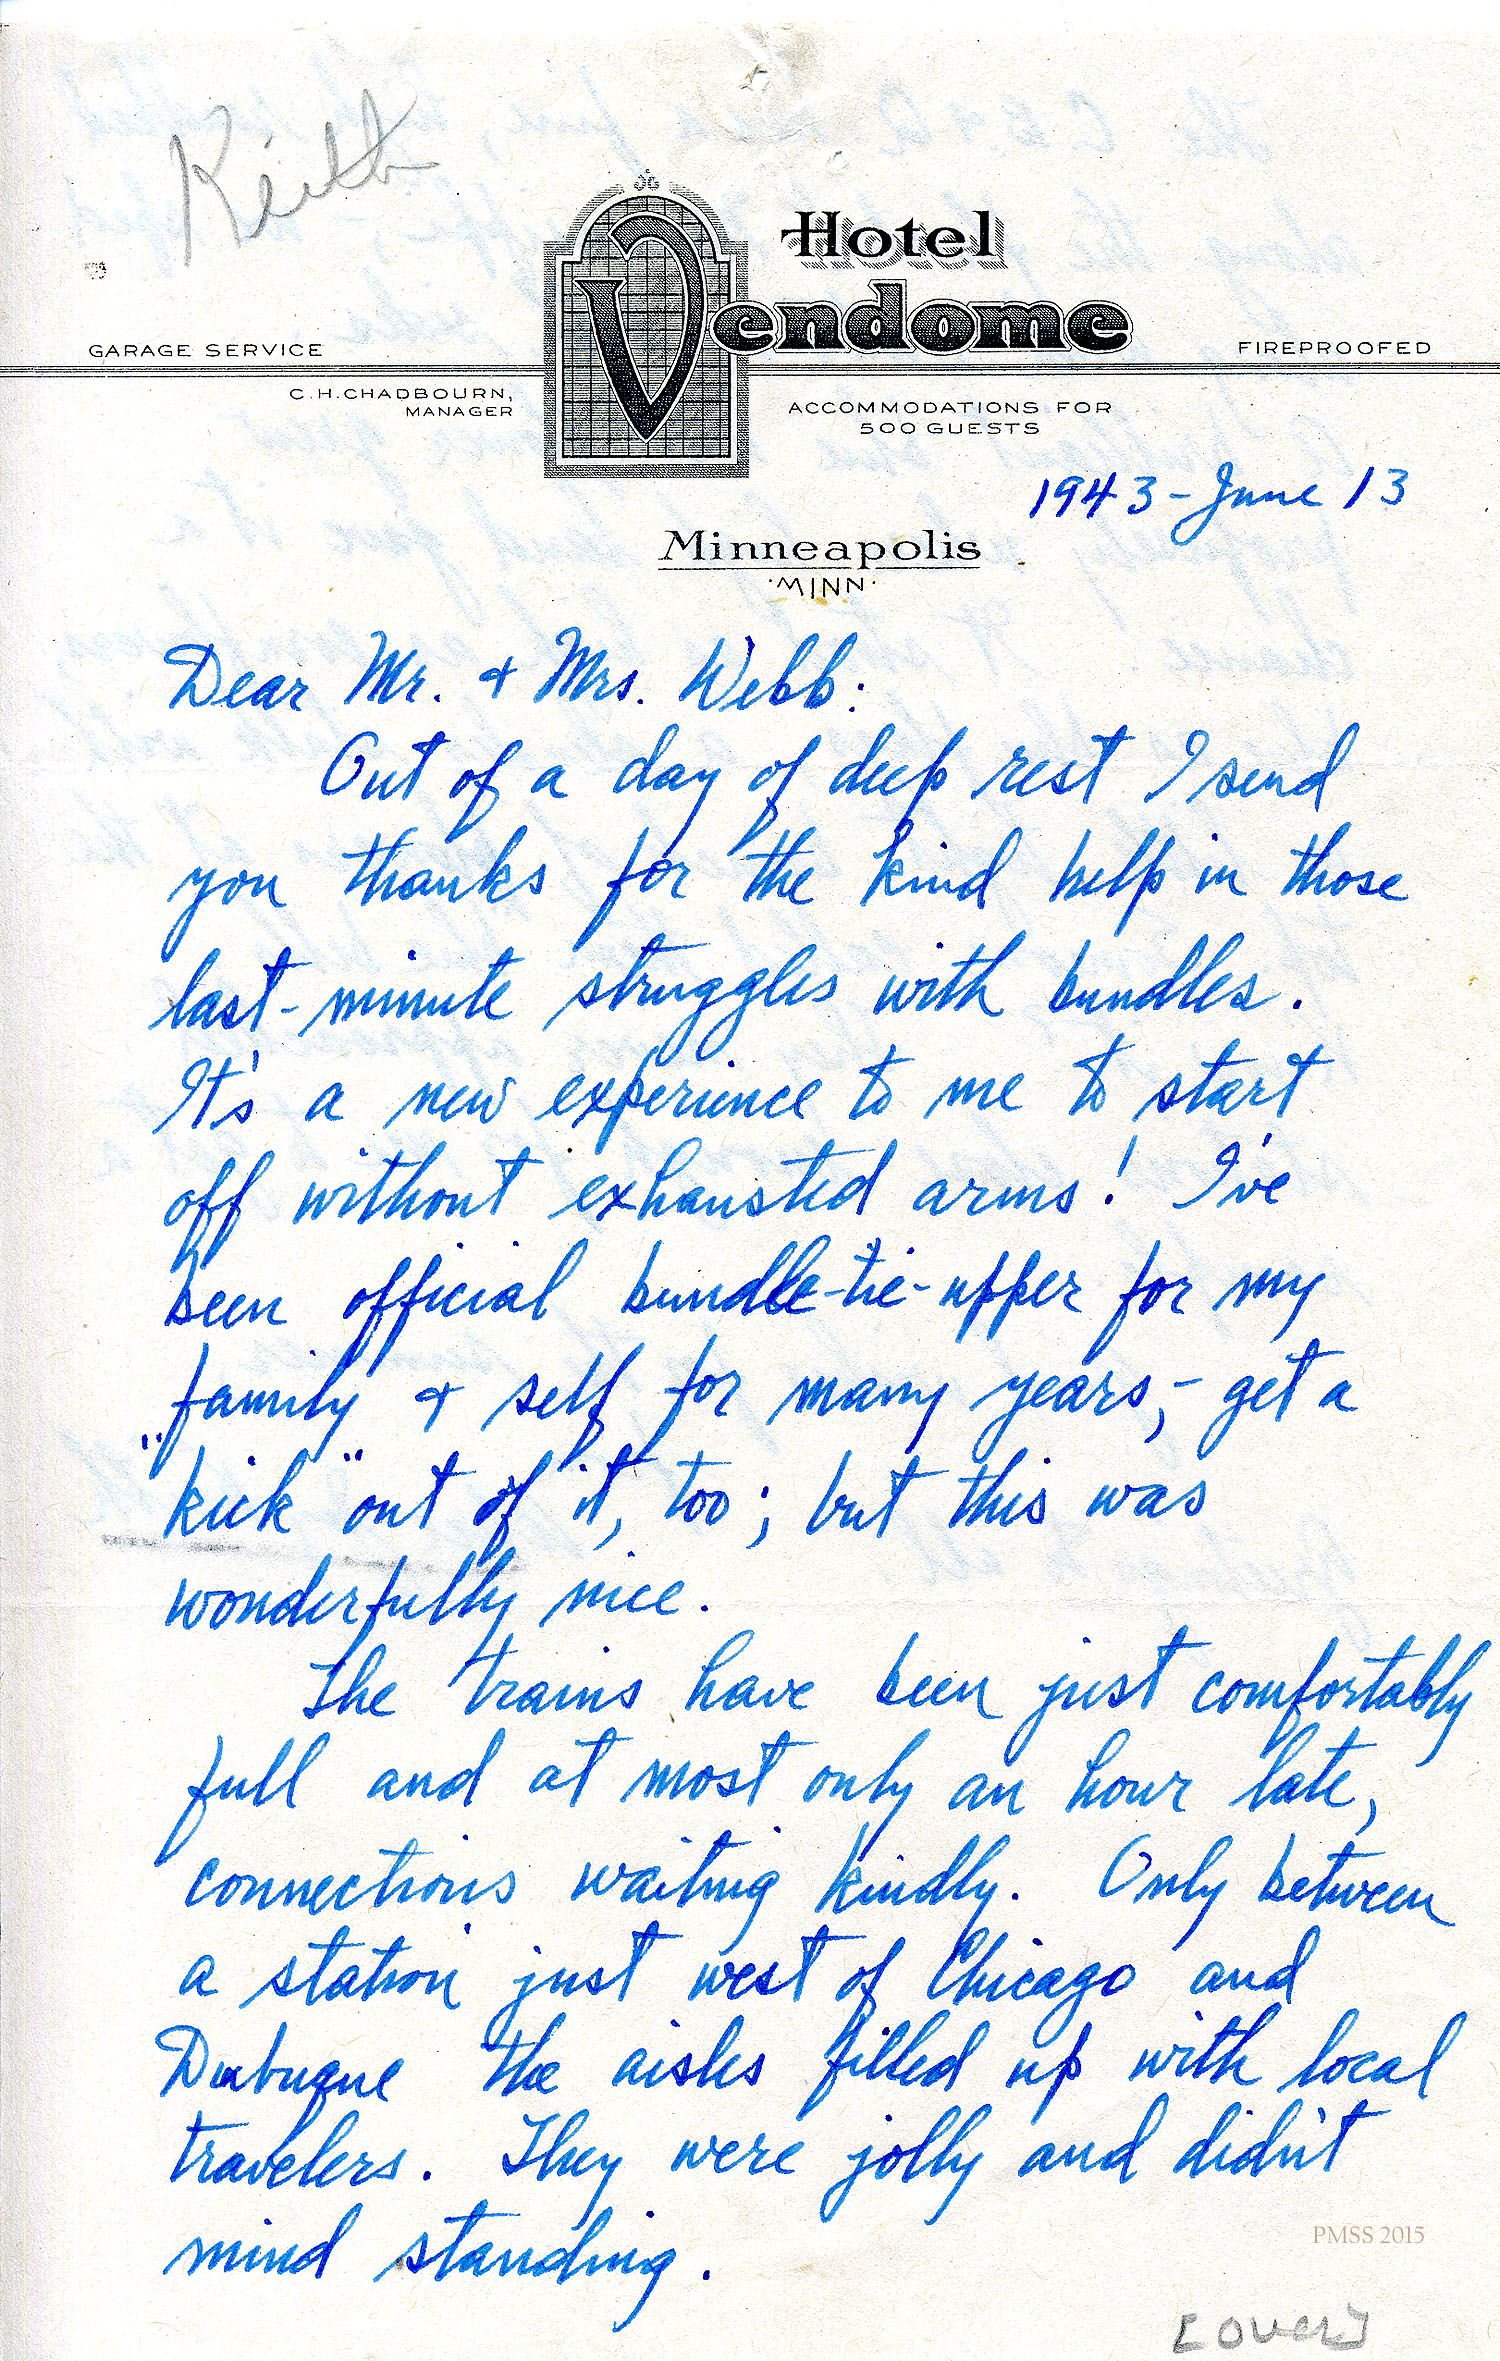 Keith
Hotel
Vendome
GARAGE SERVICE
FIREPROOFED
C.H. CHADBOURN,
MANAGER
ACCOMMODATIONS FOR
500 GUESTS
1943 - June 13
Minneapolis
·MINN·
Dear Mr. & Mrs. Webb:
Out of a day of deep rest I send
you thanks for the kind help in those
last-minute struggles with bundles.
It's a new experience to me to start
off without exhausted arms! I've
been official bundle-tie-upper for my
family & self for many years, - get a
"kick" out of it, too; but this was
wonderfully nice.
The trains have been just comfortably
full and at most only an hour late,
connections waiting kindly. Only between
a station just west of Chicago and
Dubuque the aisles filled up with local
travelers. They were jolly and didn't
mind standing.
PMSS 2015
[over]